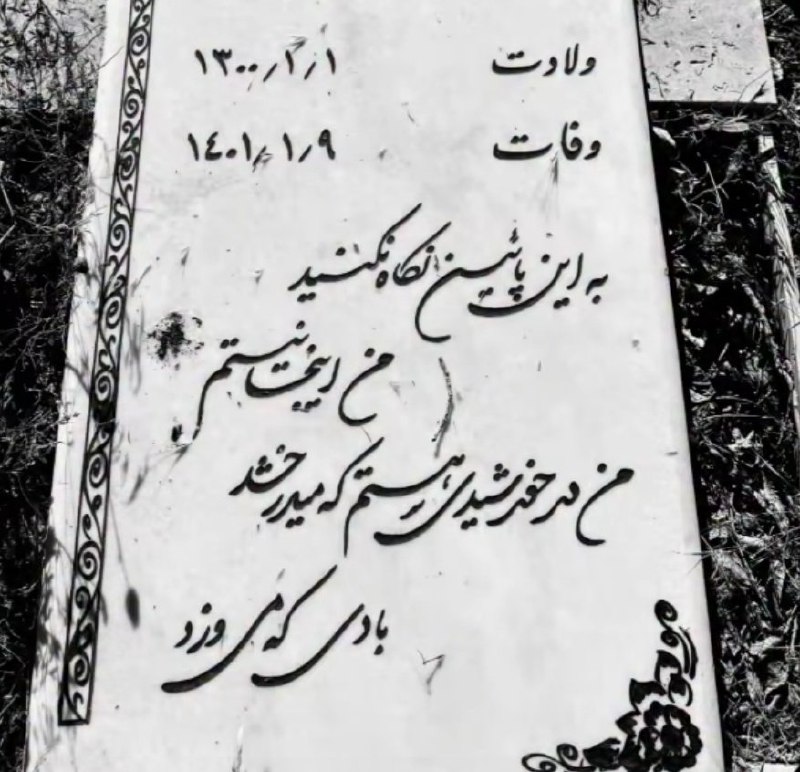 ولادت ۱۳۰۰/۲/۱
وفات ۱۴۰۱/۱/۹
به این پائین نگاه نکنید
من اینجا نیستم
من در خورشیدی هستم که میدرخشد
بادی که می وزد